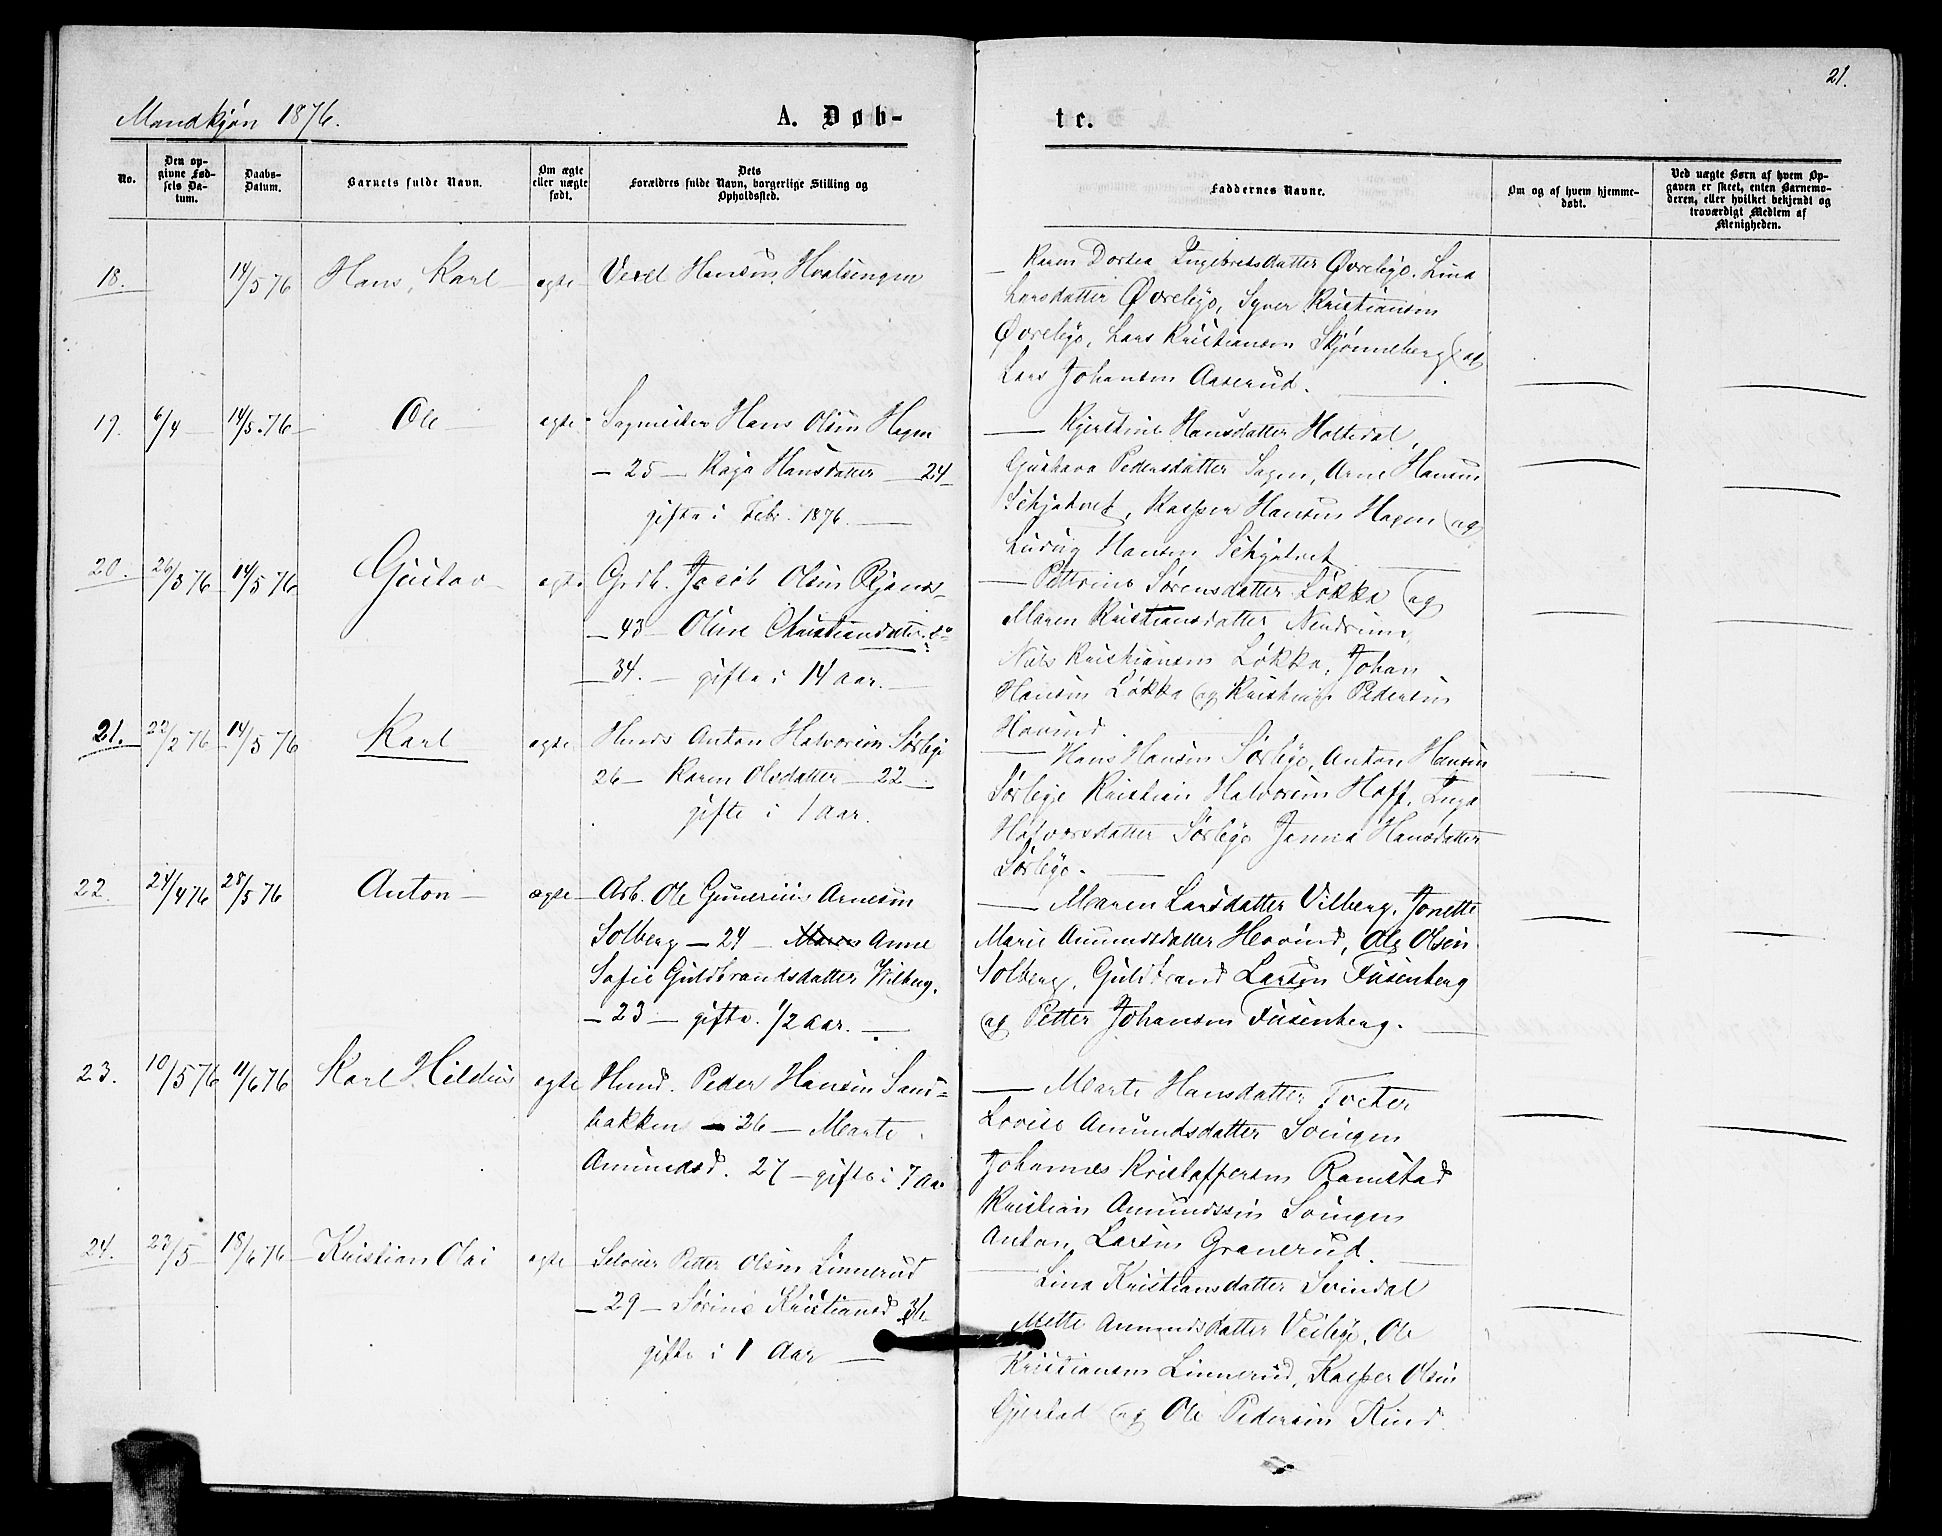 21.
Mandkjön 1876.
A. Døb-
te.
No.
Den op-
givne Fød-
sels Da-
tum.
Daabs-
Datum.
Barnets fulde Navn.
Om ægte
eller uægte
født.
Dets
Forældres fulde Navn, borgerlige Stilling og
Opholdssted.
Faddernes Navne.
Om og af hvem hjemme-
døbt.
Ved uægte Børn af hvem Op-
gaven er skeet, enten Barnemo-
deren, eller hvilket bekjendt og
troværdigt Medlem af
Menigheden.
18. 14/5 76 Hans, Karl ægte Hansen
Karen Dortea Ingebretsdatter Øvrebye. Lina
Larsdatter Øvrebye, Syver Kristiansen
Øvrebye, Lars Kristiansen Skjønneberg og
Lars Johansen Aaserud.
19. 6/4 — 14/5.76 — Ole — ægte Hans Olsen Hagen
— 25 — Kaja Hansdatter — 24 —
gifte i Febr. 1876. —
— Kjerstine Hansdatter Holtedal,
Gustava Pedersdatter Sagen, Arne Hansen
Schjatvet, Kasper Hansen Hagen og
Ludvig Hansen Schjatvet
20. 26/3 76 14/5 76 Gustav — ægte Grdb. Jacob Olsen
— 43 — Oline Christiansdatter
— 34. — gifte i 14 aar. —
— Petrine Sørensdatter Løkka og
Maren Kristiansdatter
Nils Kristiansen Løkka, Johan
Hansen Løkka og Kristian Pedersen
Hovind.
21. 22/2 76 14/5 76 Karl ægte Huusm Anton Halvorsen Sørbye
26 — Karen Olsdatter — 22 —
gifte i 1 aar.
— Hans Hansen Sørbye, Anton Hansen
Sørbye Kristian Halvorsen Hoff, Inga
Halvorsdatter Sørbye Janna Hansdatter
Sørbye. —
22. 24/4 76 28/5 76 Anton — ægte — Arb. Ole Gunerius Arnesen
Solberg — 24 — Maren Anne
Sofie Guldbrandsdatter Wilberg.
— 23 — gifte. 1/2 aar. —
— Maren Larsdatter Vilberg, Jonette
Marie Amundsdatter Hovind, Ole Olsen
Solberg, Guldbrand Larsen Fusenberg
og Petter Johansen Fusenberg. —
23. 10/5 76 11/6 76 Karl Hildus ægte Huusm. Peder Hansen Sand=
bakken — 26 — Marte
Amundsd. 27 — gifte i 7 aar
— Marte Hansdatter Tveter
Lovise Amundsdatter Svingen
Johannes Kristoffersen Ramstad
Kristian Amundssen Svingen
Anton Larsen Granerud.
24. 22/5 — 18/6 76 — Kristian Olai ægte — Selveier Petter Olsen Linnerud
— 29 — Sørine Kristiansd
gifte i 1 Aar —
Lina Kristiansdatter Svindal
Mette Amundsdatter Veibye, Ole
Kristiansen Linnerud, Kasper Olsen
Gjestad og Ole Pedersen Rind.